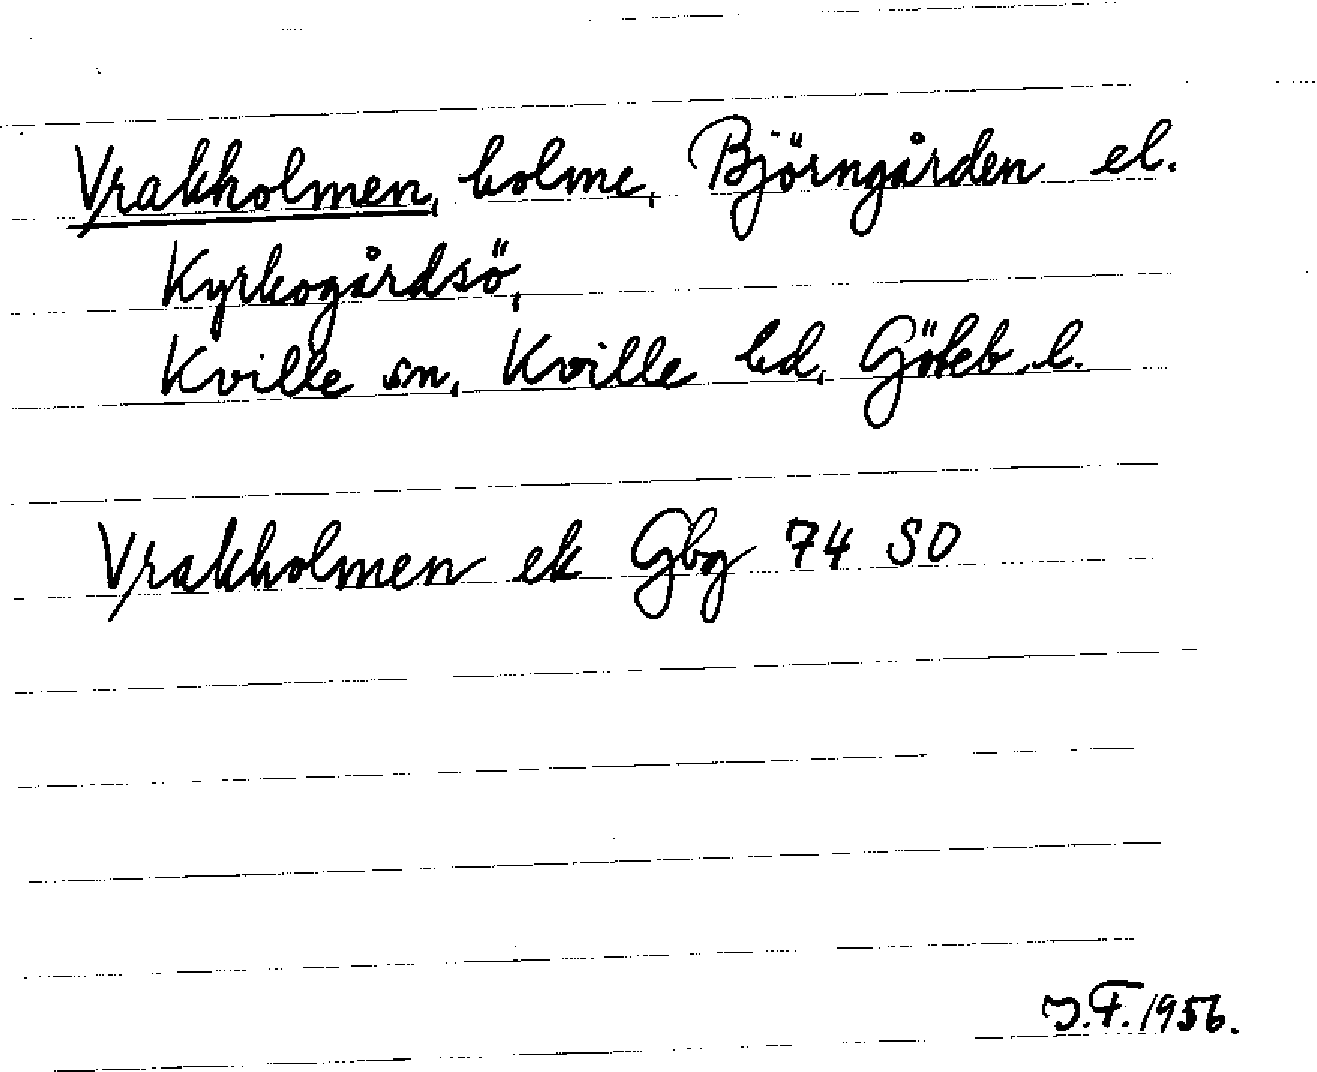 Vrakholmen, holme, Björngården el.
Kyrkogårdsö,
Kville sn, Kville hd, Göteb. l.
Vrakholmen ek Gbg 74 SO
J.F. 1956.